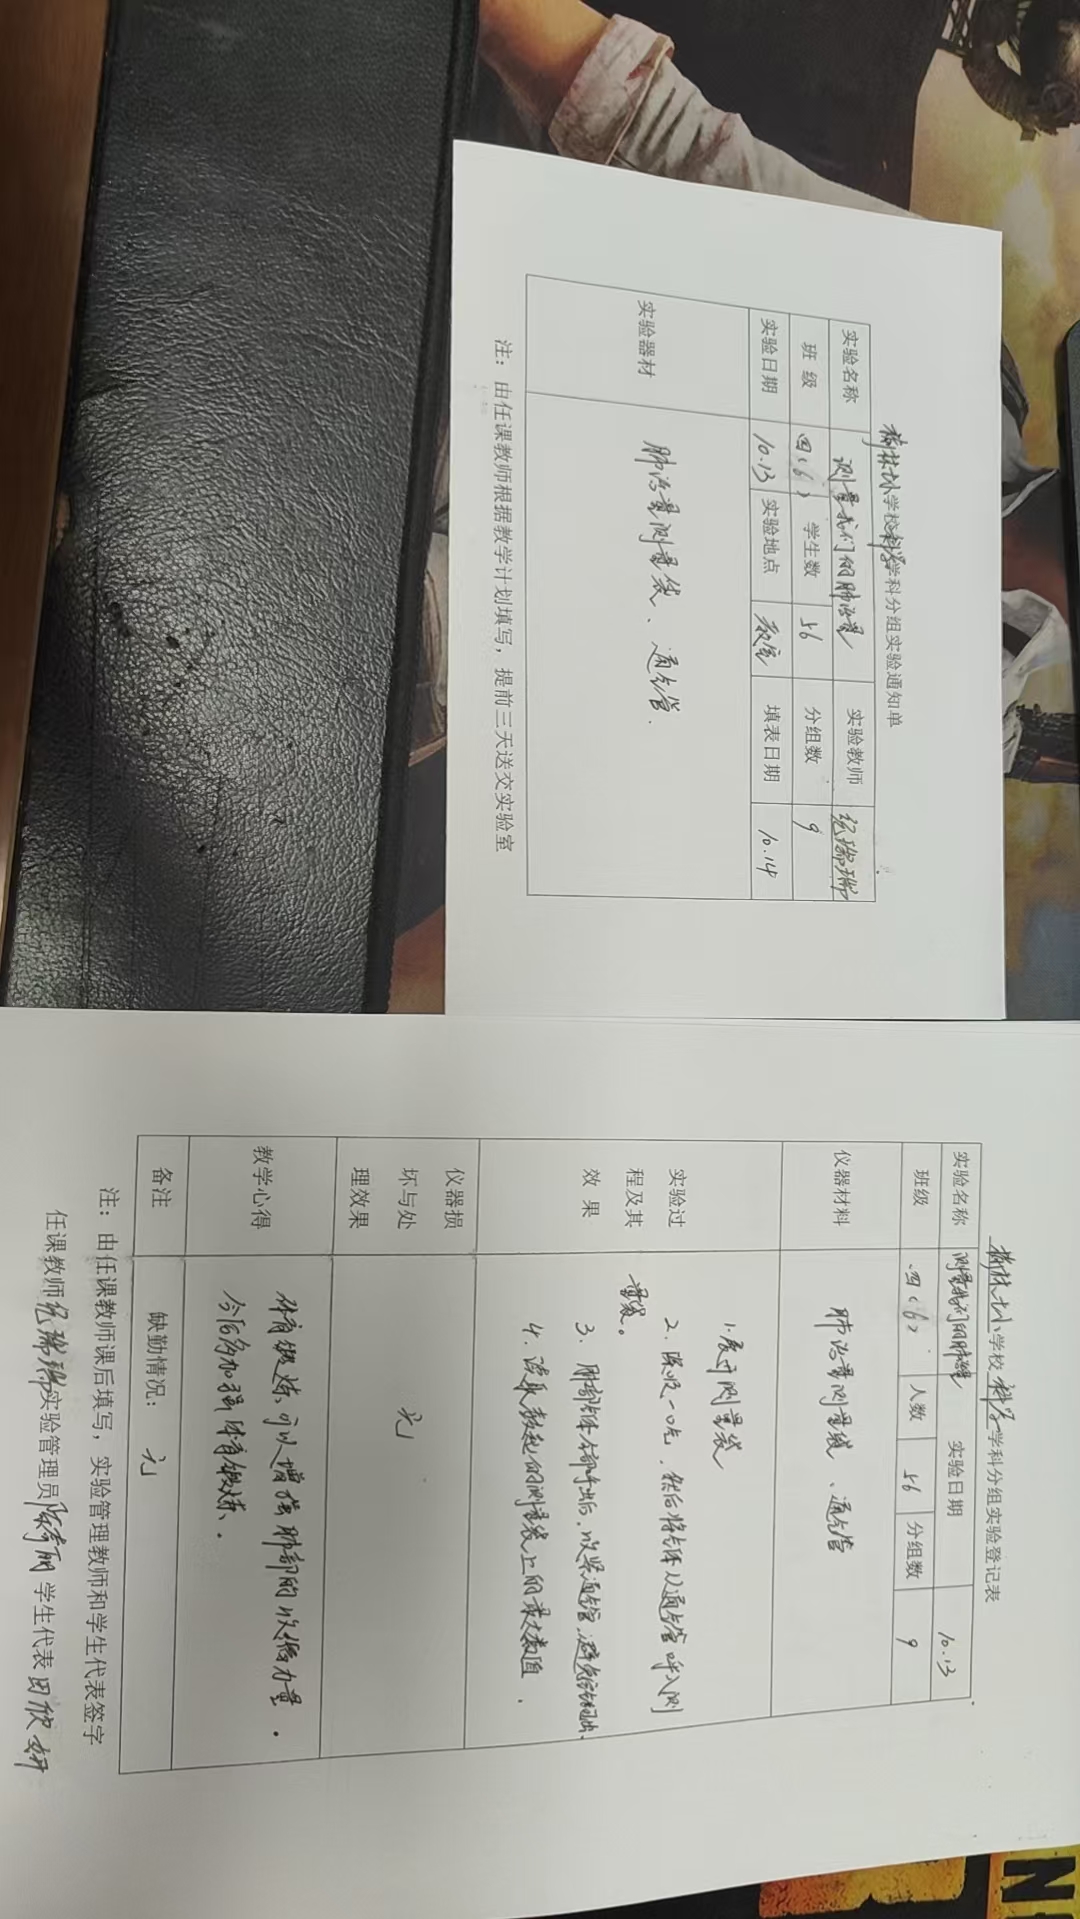 学校科学学科分组实验通知单
实验名称 测量我们的肺活量 实验教师
班级 四（6） 学生数 56 分组数 9
实验日期 10.13 实验地点 教室 填表日期 10.14
实验器材 肺活量测量袋、通气管.
注：由任课教师根据教学计划填写，提前三天送交实验室
学校科学学科分组实验登记表
实验名称 测量我们的肺活量 实验日期 10.13
班级 四（6） 人数 56 分组数 9
仪器材料 肺活量测量袋、通气管
实验过程及其效果
1.展开测量袋
2.深吸一口气，然后将气体从通气管呼入测
量袋。
3.肺部气体全部呼出后，收紧通气管，避免气体溢出.
4.读取鼓起的测量袋上的最大数值.
仪器损坏与处理效果 无
教学心得 体育锻炼可以增强肺部的收缩力量.
今后多加强体育锻炼.
备注 缺勤情况：无
注：由任课教师课后填写，实验管理教师和学生代表签字
任课教师 实验管理员 学生代表 田欣妍